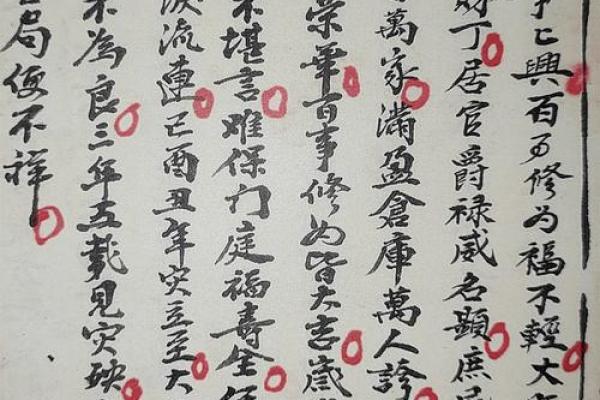 興百事修为福不輕大
丁居官爵禄威名顯庶
萬家滿盈倉庫萬人誇
榮華百事修为皆大吉歲
不堪言难保门庭福壽全
淚流連己酉丑年灾立至大
不為良三年五載見灾殃
局便不祥